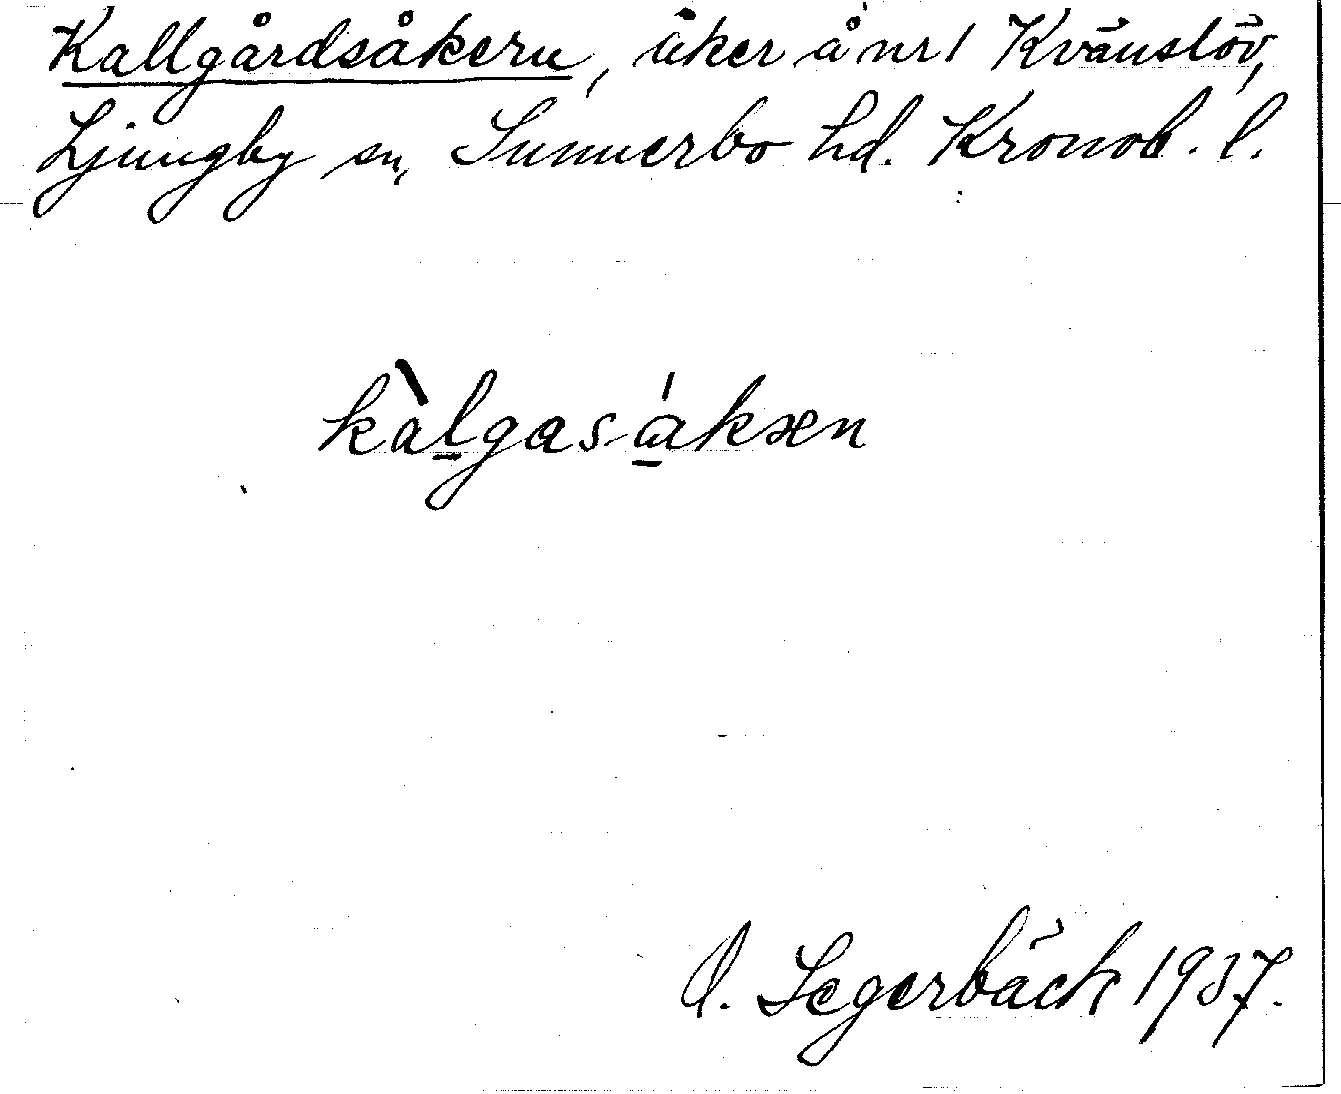 Kallgårdsåkern, åker å nr 1 Kvänslöv,
Ljungby sn, Sunnerbo hd. Kronob. l.
kàlgasákæn
O. Segerbäck 1937.